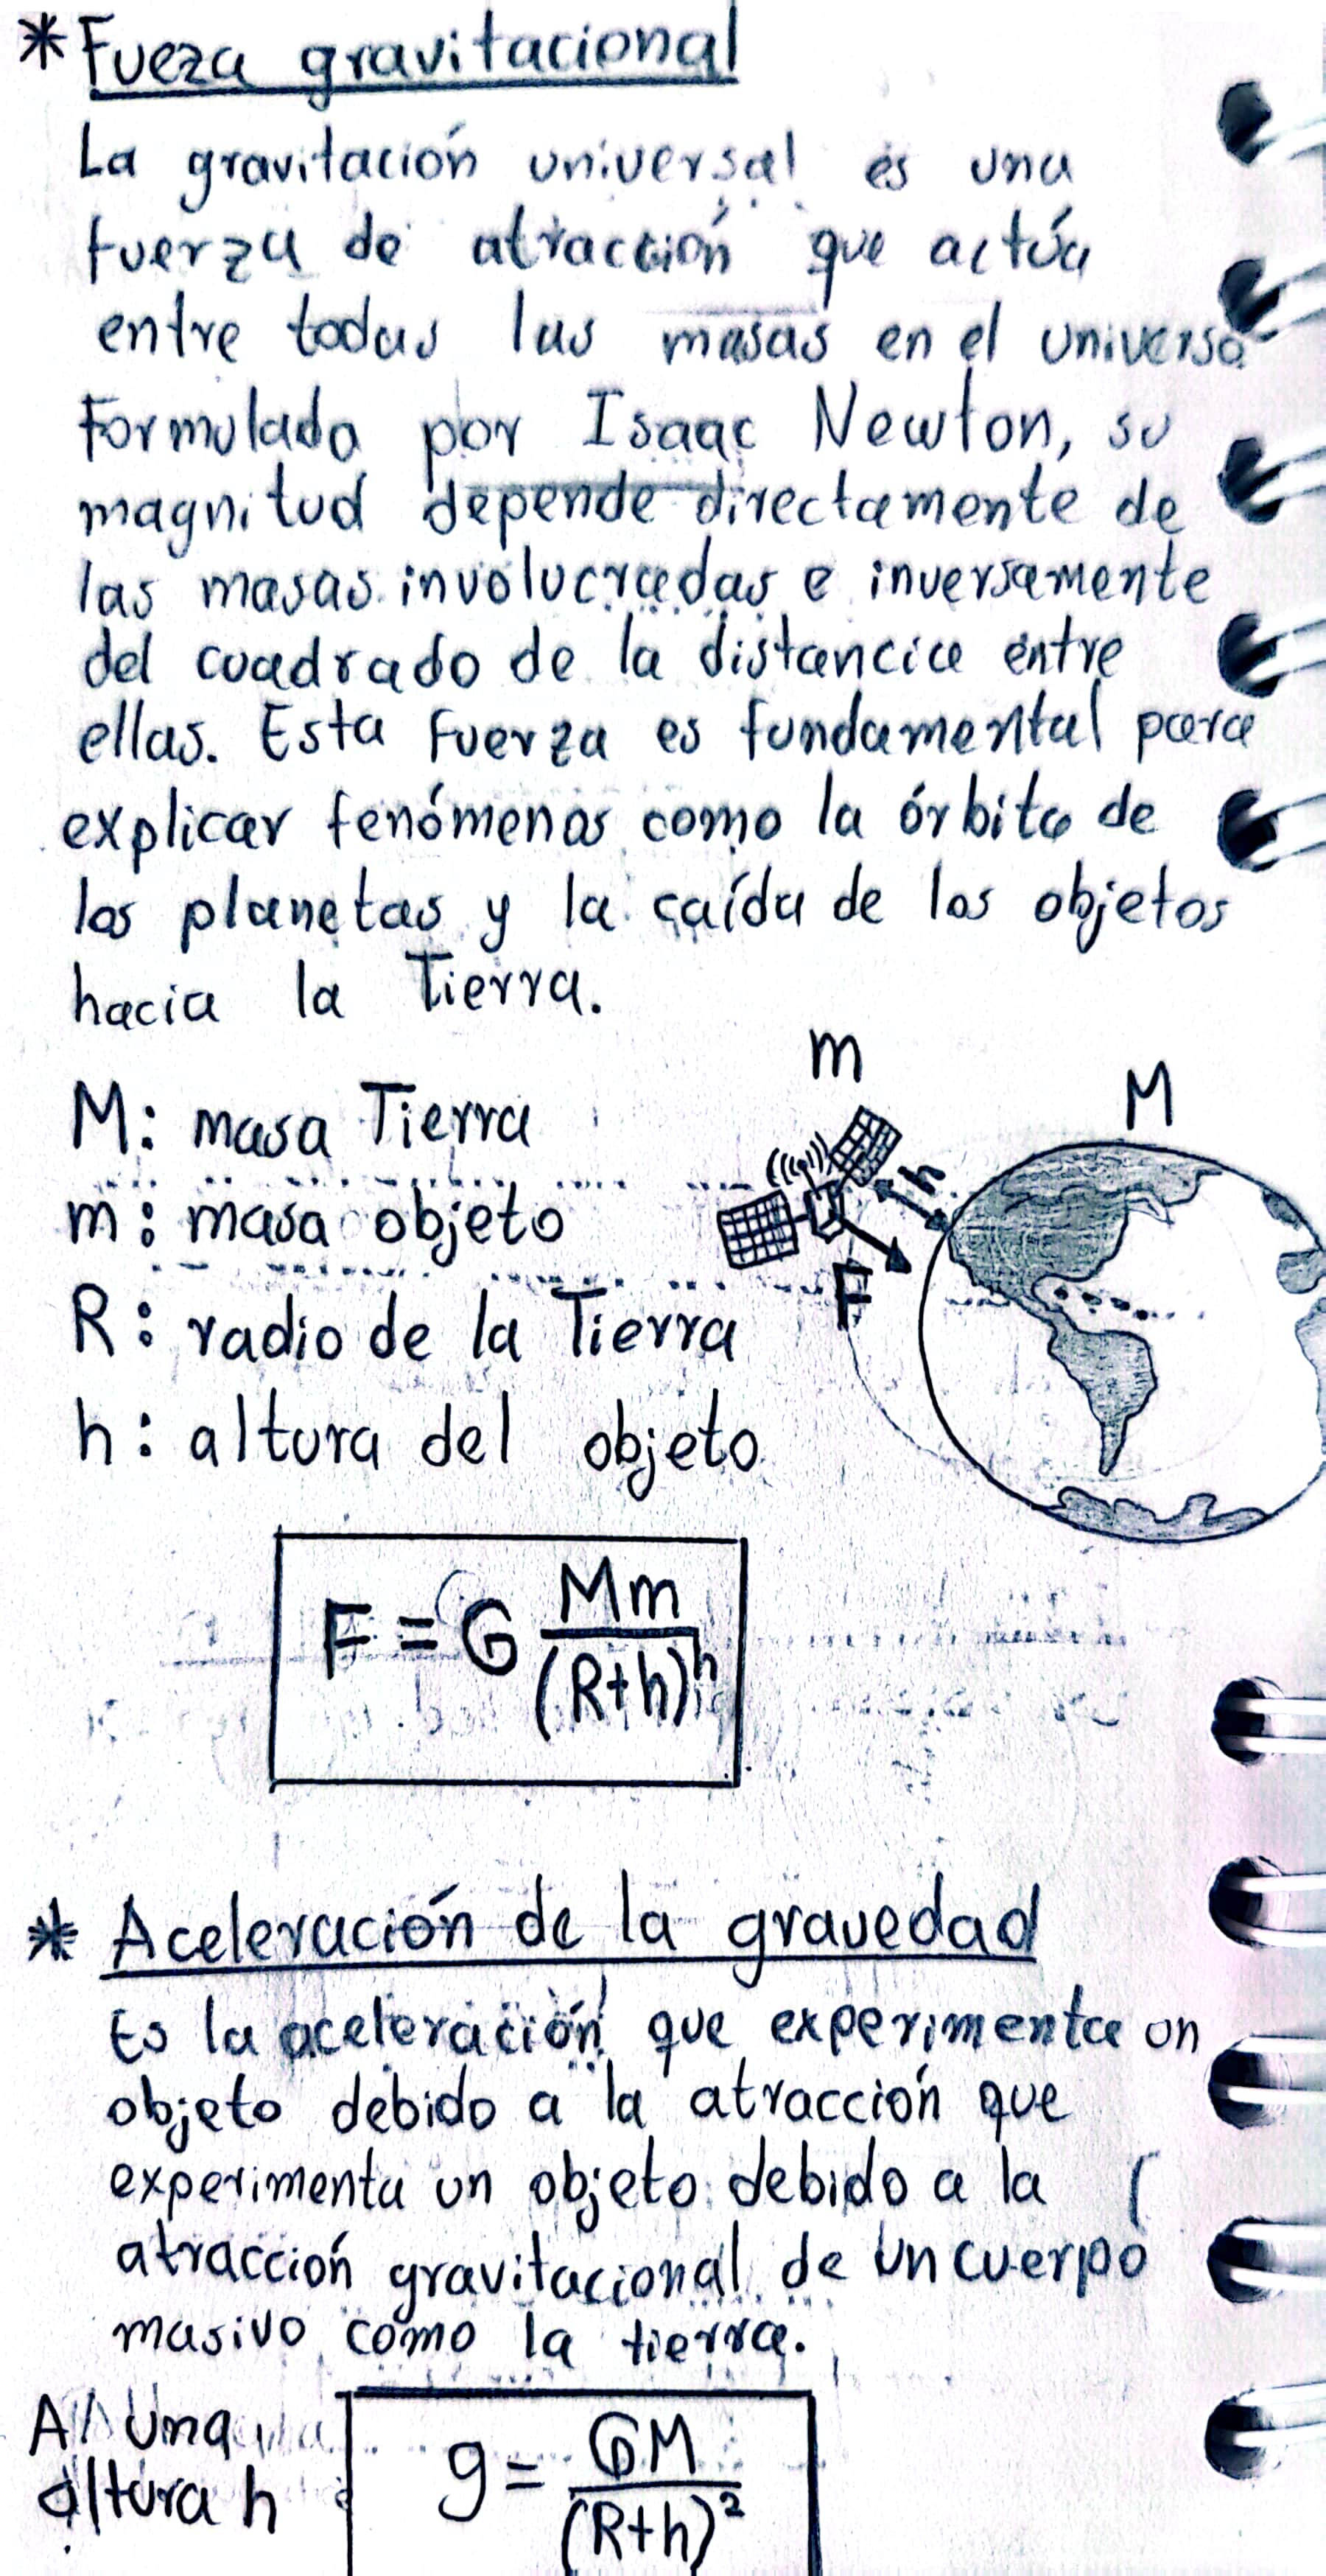 * Fueza gravitacional
La gravitación universal es una
fuerza de atracción que actúa
entre todas las masas en el universo
Formulado por Isaac Newton, su
magnitud depende directamente de
las masas involucradas e inversamente
del cuadrado de la distancia entre
ellas. Esta Fuerza es fundamental para
explicar fenómenos como la órbita de
los planetas y la caída de los objetos
hacia la Tierra.
m
M
M: masa Tierra
h
m: masa objeto
F
R: radio de la Tierra
h: altura del objeto
F = G Mm/(R+h)^h
* Aceleración de la gravedad
Es la aceleración que experimenta un
objeto debido a la atracción que
experimenta un objeto debido a la (
atracción gravitacional de un cuerpo
masivo como la tierra.
A una
altura h
g = GM/(R+h)²